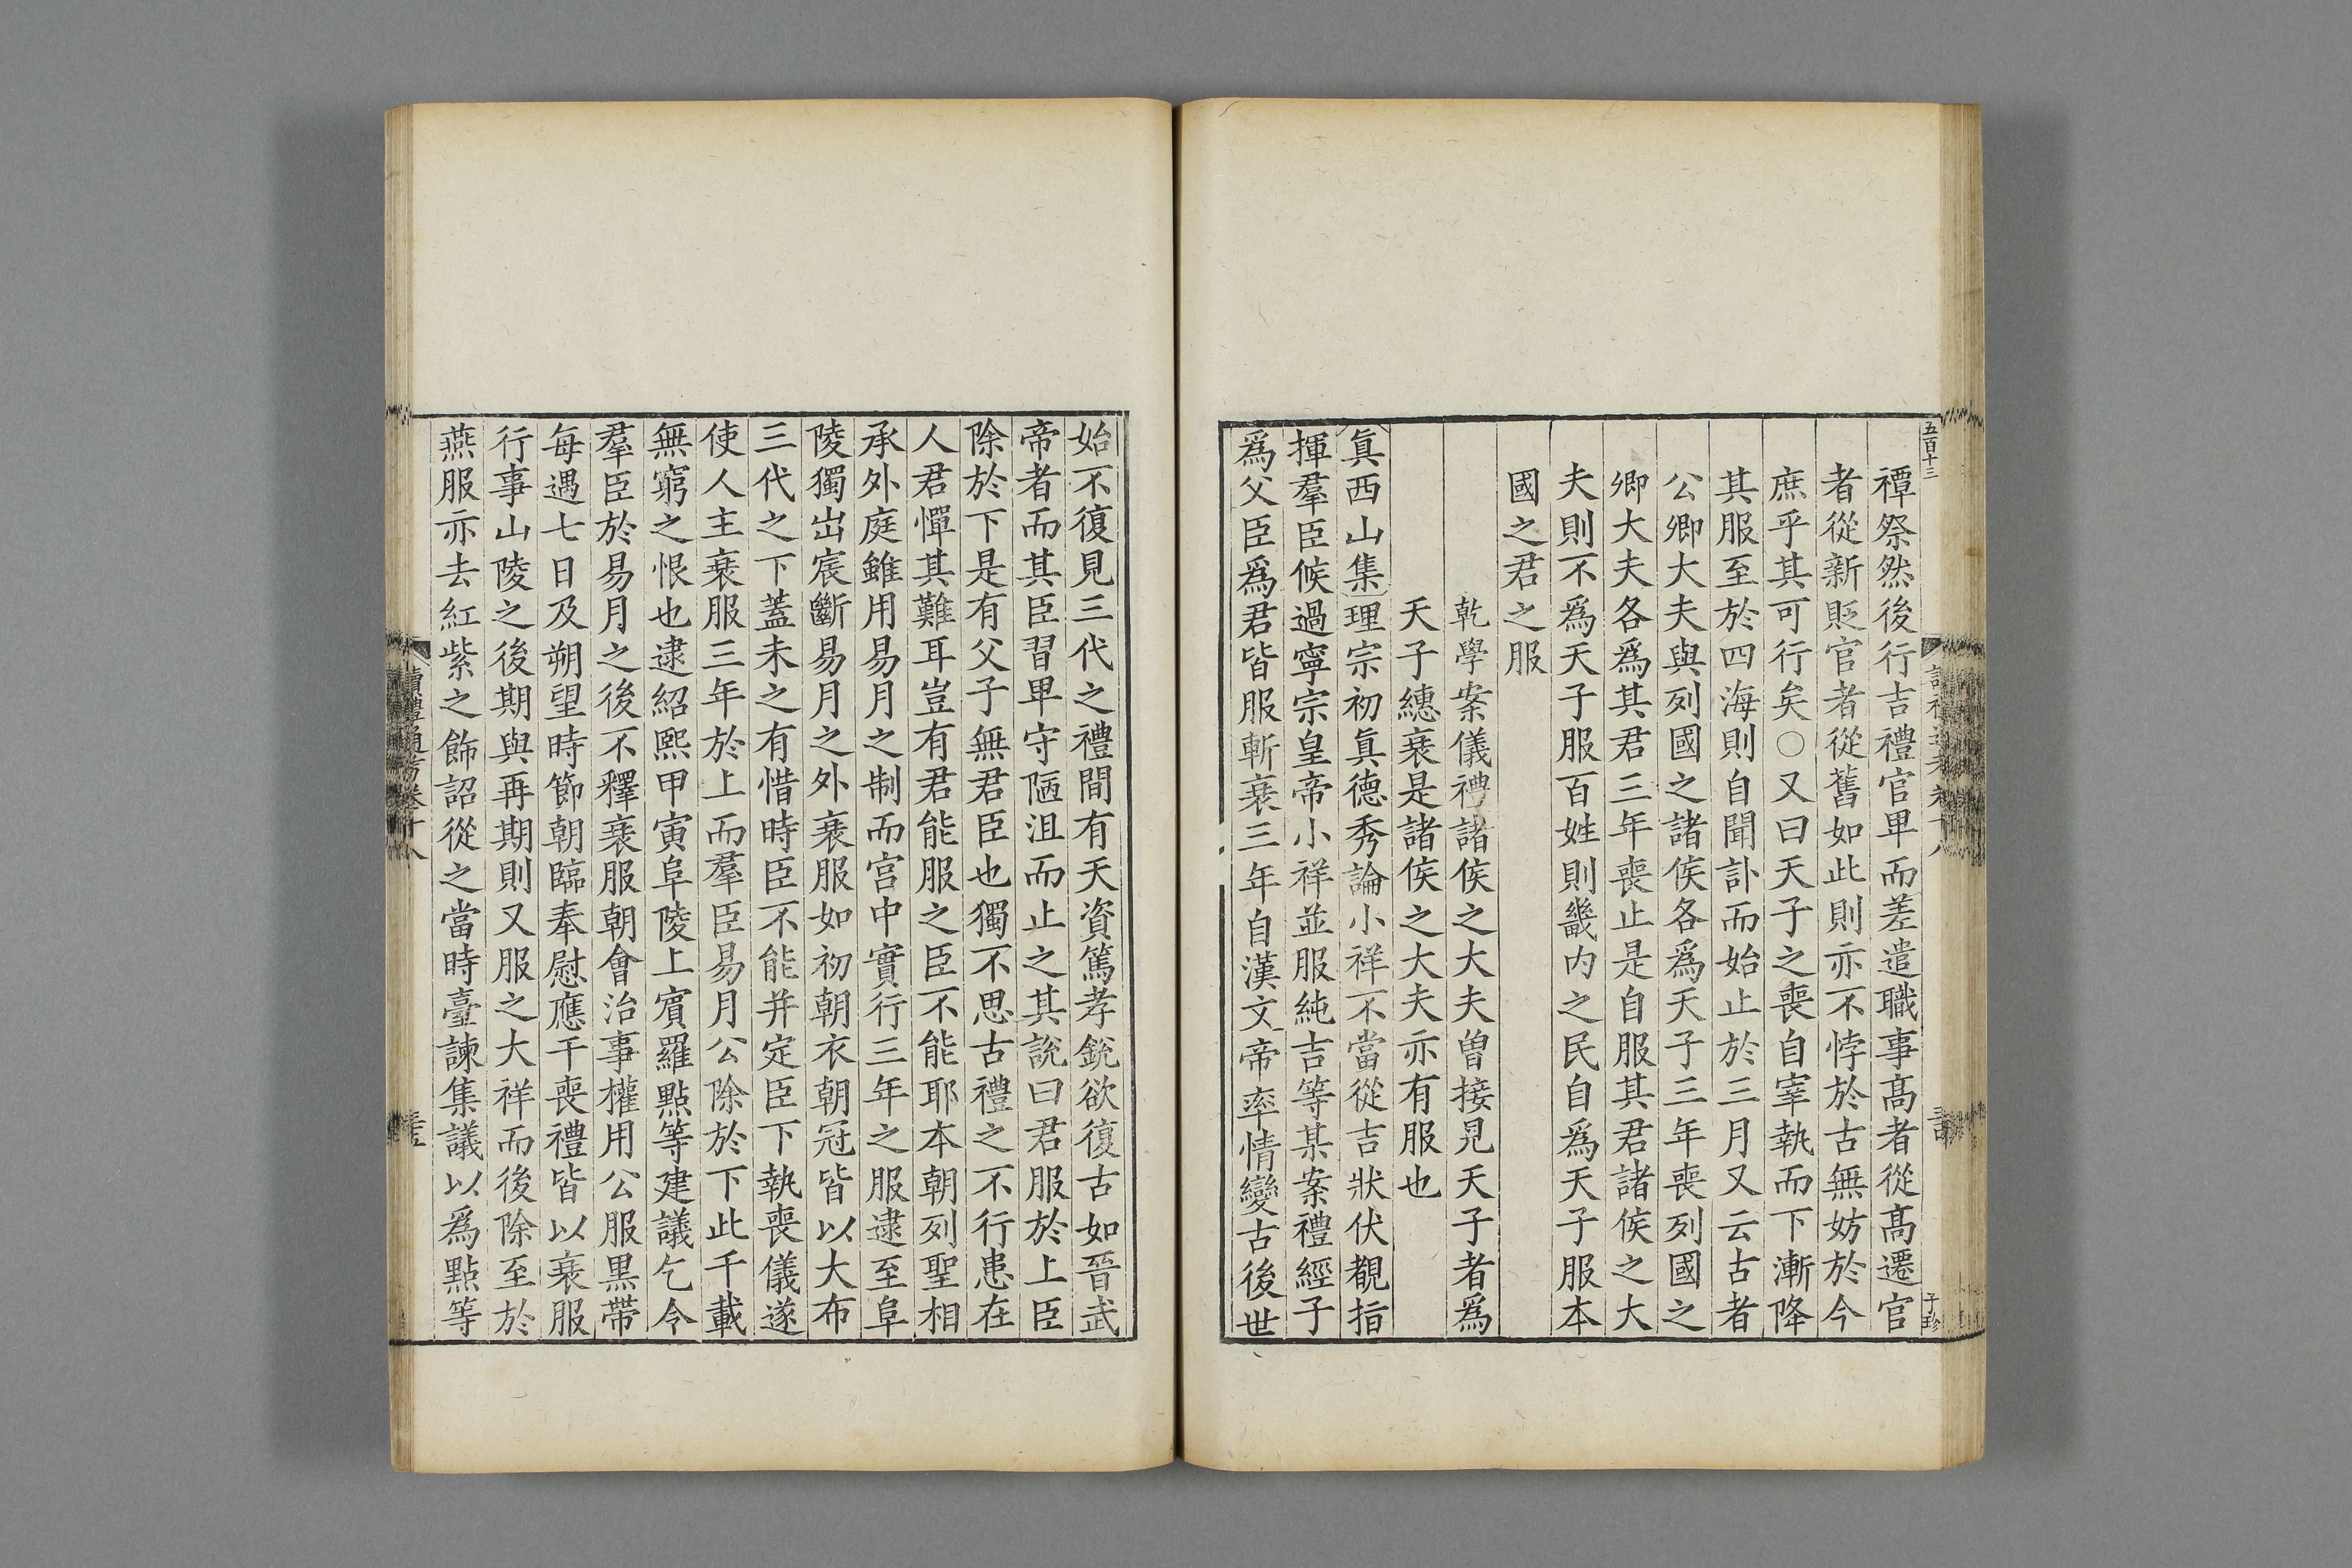 五百十三
禫祭然後行吉禮官卑而差遣職事髙者從髙遷官
者從新貶官者從舊如此則亦不悖於古無妨於今
庶乎其可行矣○又曰天子之喪自宰執而下漸降
其服至於四海則自聞訃而始止於三月又云古者
公卿大夫與列國之諸侯各爲天子三年喪列國之
卿大夫各爲其君三年喪止是自服其君諸侯之大
夫則不爲天子服百姓則畿内之民自爲天子服本
國之君之服
乾學案儀禮諸侯之大夫曽接見天子者爲
天子繐衰是諸侯之大夫亦有服也
真西山集理宗初真德秀論小祥不當從吉狀伏覩指
揮羣臣候過寧宗皇帝小祥並服純吉等某案禮經子
爲父臣爲君皆服斬衰三年自漢文帝率情變古後世
始不復見三代之禮間有天資篤孝銳欲復古如晉武
帝者而其臣習卑守陋沮而止之其說曰君服於上臣
除於下是有父子無君臣也獨不思古禮之不行患在
人君憚其難耳豈有君能服之臣不能耶本朝列聖相
承外庭雖用易月之制而宫中實行三年之服逮至阜
陵獨出宸斷易月之外衰服如初朝衣朝冠皆以大布
三代之下蓋未之有惜時臣不能并定臣下執喪儀遂
使人主衰服三年於上而羣臣易月公除於下此千載
無窮之恨也逮紹熙甲寅阜陵上賓羅點等建議乞令
羣臣於易月之後不釋衰服朝會治事權用公服黒帶
每遇七日及朔望時節朝臨奉慰應干喪禮皆以衰服
行事山陵之後期與再期則又服之大祥而後除至於
燕服亦去紅紫之飾詔從之當時臺諫集議以爲點等
讀禮通考卷十八